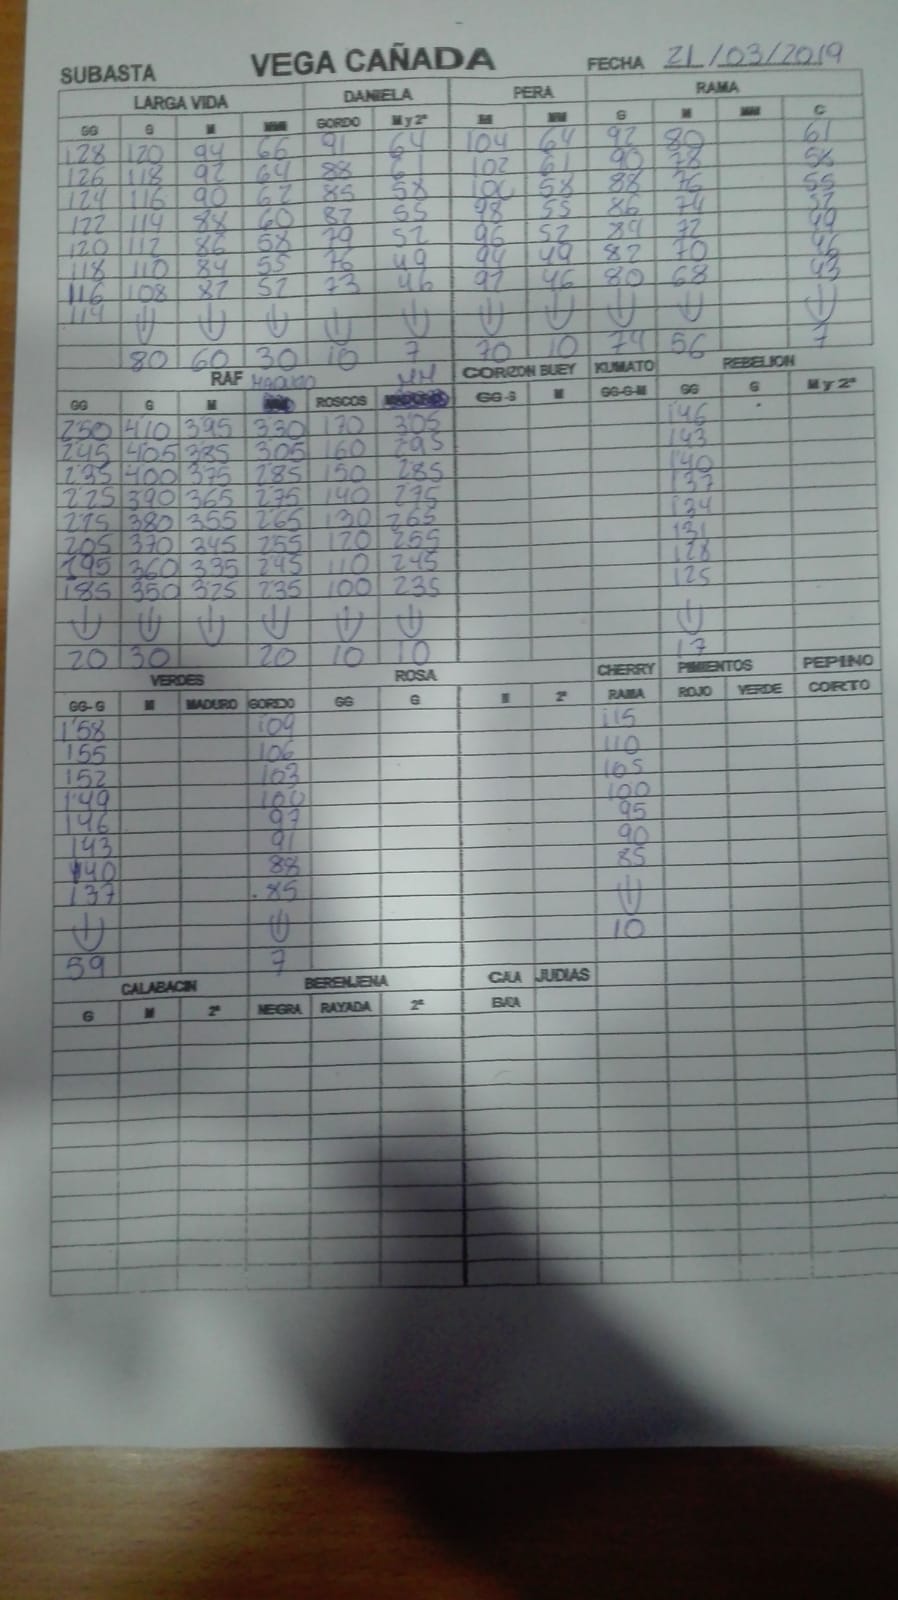 SUBASTA VEGA CAÑADA FECHA 21/03/2019
LARGA VIDA DANIELA PERA RAMA
GG G M MM GORDO M y 2ª M MM G M MM C
128 120 94 66 91 64 104 64 92 80 61
126 118 92 64 88 61 102 61 90 78 58
124 116 90 62 85 58 100 58 88 76 55
122 114 88 60 82 55 98 55 86 74 52
120 112 86 58 79 52 96 52 84 72 49
118 110 84 55 76 49 94 49 82 70 46
116 108 82 52 73 46 92 46 80 68 43
114
80 60 30 10 7 70 10 74 56 7
RAF MADURO MM CORZON BUEY KUMATO REBELION
GG G M ROSCOS GG-G M GG-G-M GG G M y 2ª
250 410 395 330 170 305 146
245 405 385 305 160 295 143
235 400 375 285 150 285 140
225 390 365 275 140 275 137
215 380 355 265 130 265 134
205 370 345 255 120 255 131
195 360 335 245 110 245 128
185 350 325 235 100 235 125
20 30 20 10 10 17
VERDES ROSA CHERRY PIMIENTOS PEPINO
GG-G M MADURO GORDO GG G M 2ª RAMA ROJO VERDE CORTO
1'58 109 115
155 106 110
152 103 105
149 100 100
146 97 95
143 91 90
140 88 85
137 85
59 7 10
CALABACIN BERENJENA CAA JUDIAS
G M 2ª NEGRA RAYADA 2ª